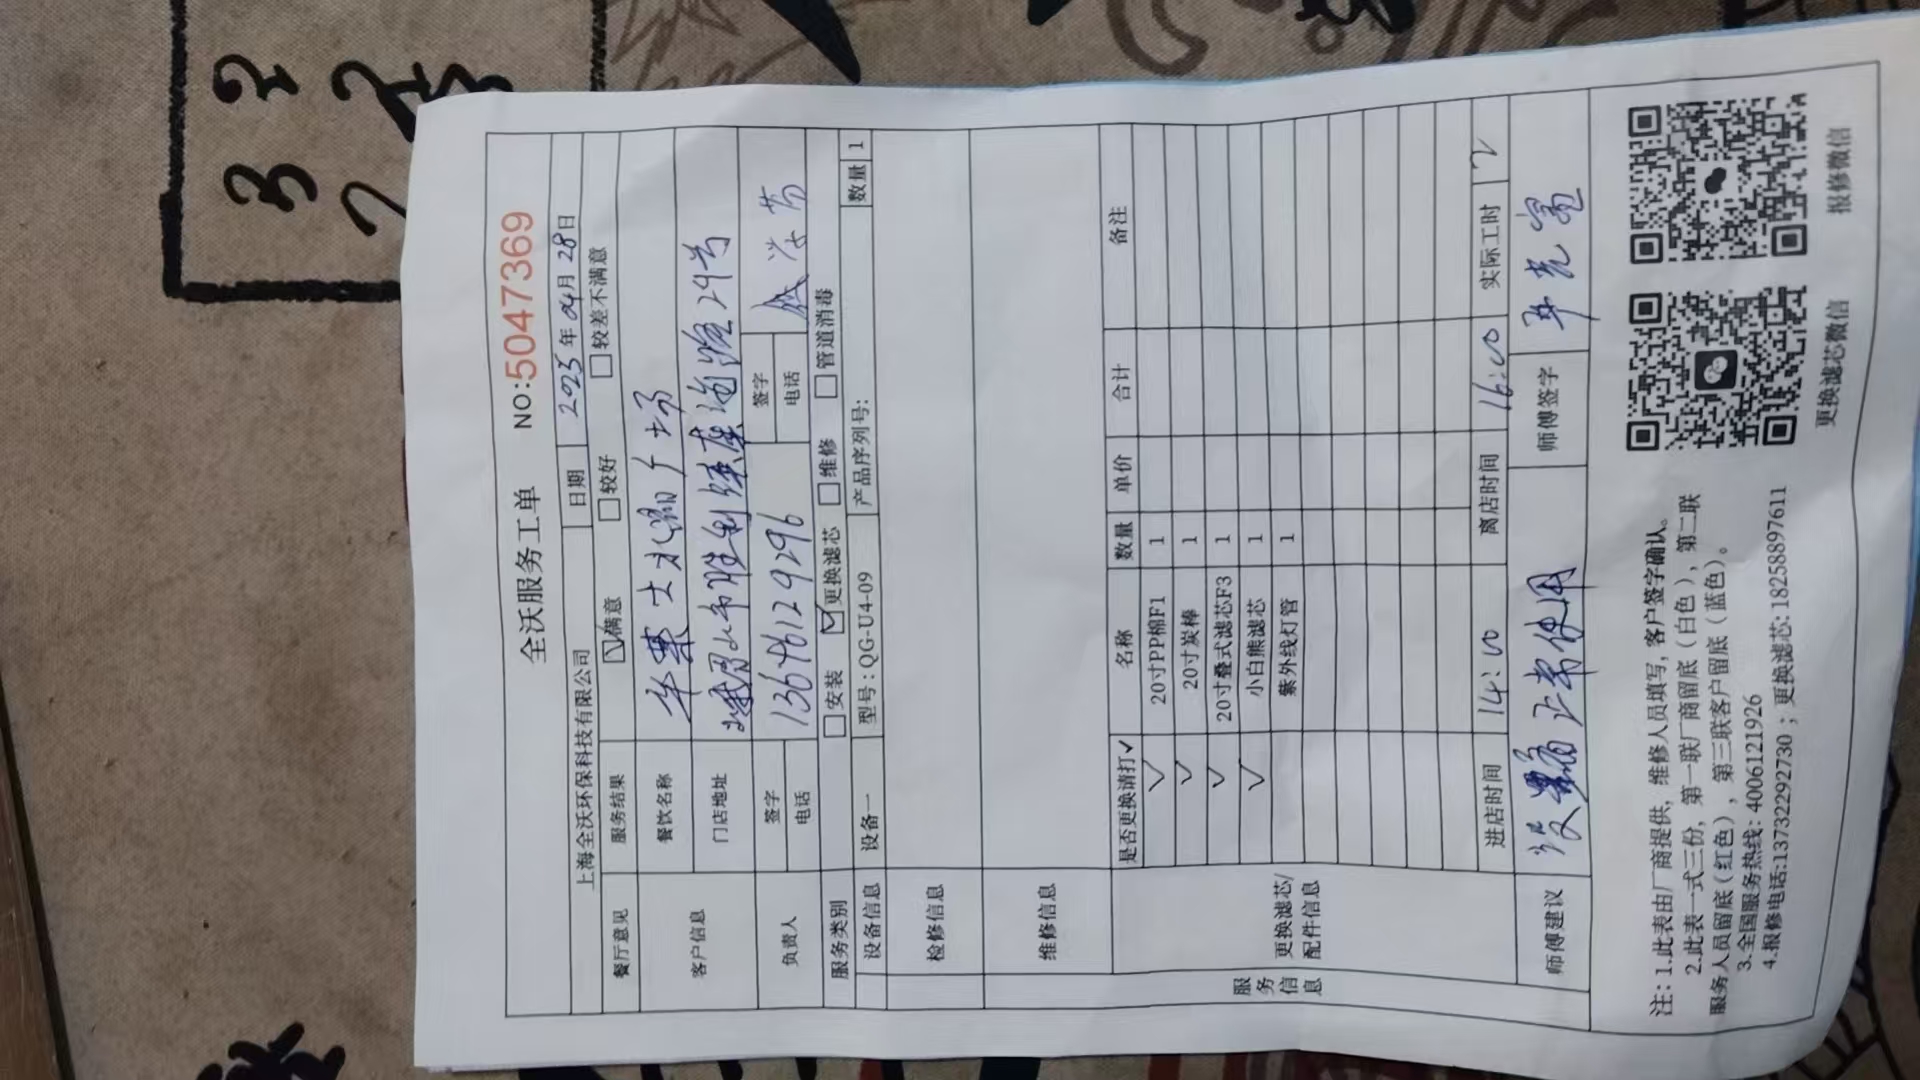 全沃服务工单 NO:5047369
上海全沃环保科技有限公司 日期 2025年04月28日
餐厅意见 服务结果 ☑满意 □较好 □较差不满意
客户信息 餐饮名称 华莱士水湖广场
门店地址 胜利 路29号
负责人 签字 签字
电话 13646129296 电话
服务类别 □安装 ☑更换滤芯 □维修 □管道消毒
设备信息 设备一 型号:QG-U4-09 产品序列号: 数量 1
检修信息
维修信息
服务信息
更换滤芯/配件信息
是否更换请打✓ 名称 数量 单价 合计 备注
✓ 20寸PP棉F1 1
✓ 20寸炭棒 1
✓ 20寸叠式滤芯F3 1
✓ 小白熊滤芯 1
紫外线灯管 1
进店时间 14:00 离店时间 16:00 实际工时 2
师傅建议 正常使用 师傅签字
注:1.此表由厂商提供,维修人员填写,客户签字确认。
2.此表一式三份,第一联厂商留底(白色),第二联
服务人员留底(红色),第三联客户留底(蓝色)。
3.全国服务热线:4006121926
4.报修电话:13732292730;更换滤芯:18258897611
更换滤芯微信 报修微信